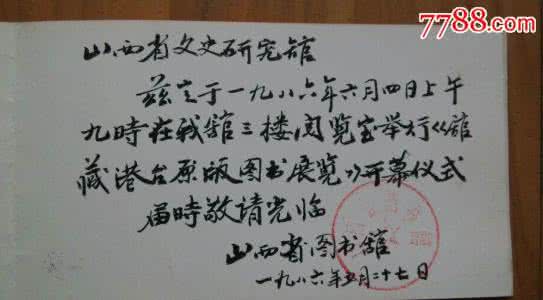 7788.com
山西省文史研究館
兹定于一九八六年六月四日上午
九時在我舘三楼阅览室举行《舘
藏港台原版图书展览》开幕仪式
届時敬请光临
山西省图书舘
一九八六年五月二十七日